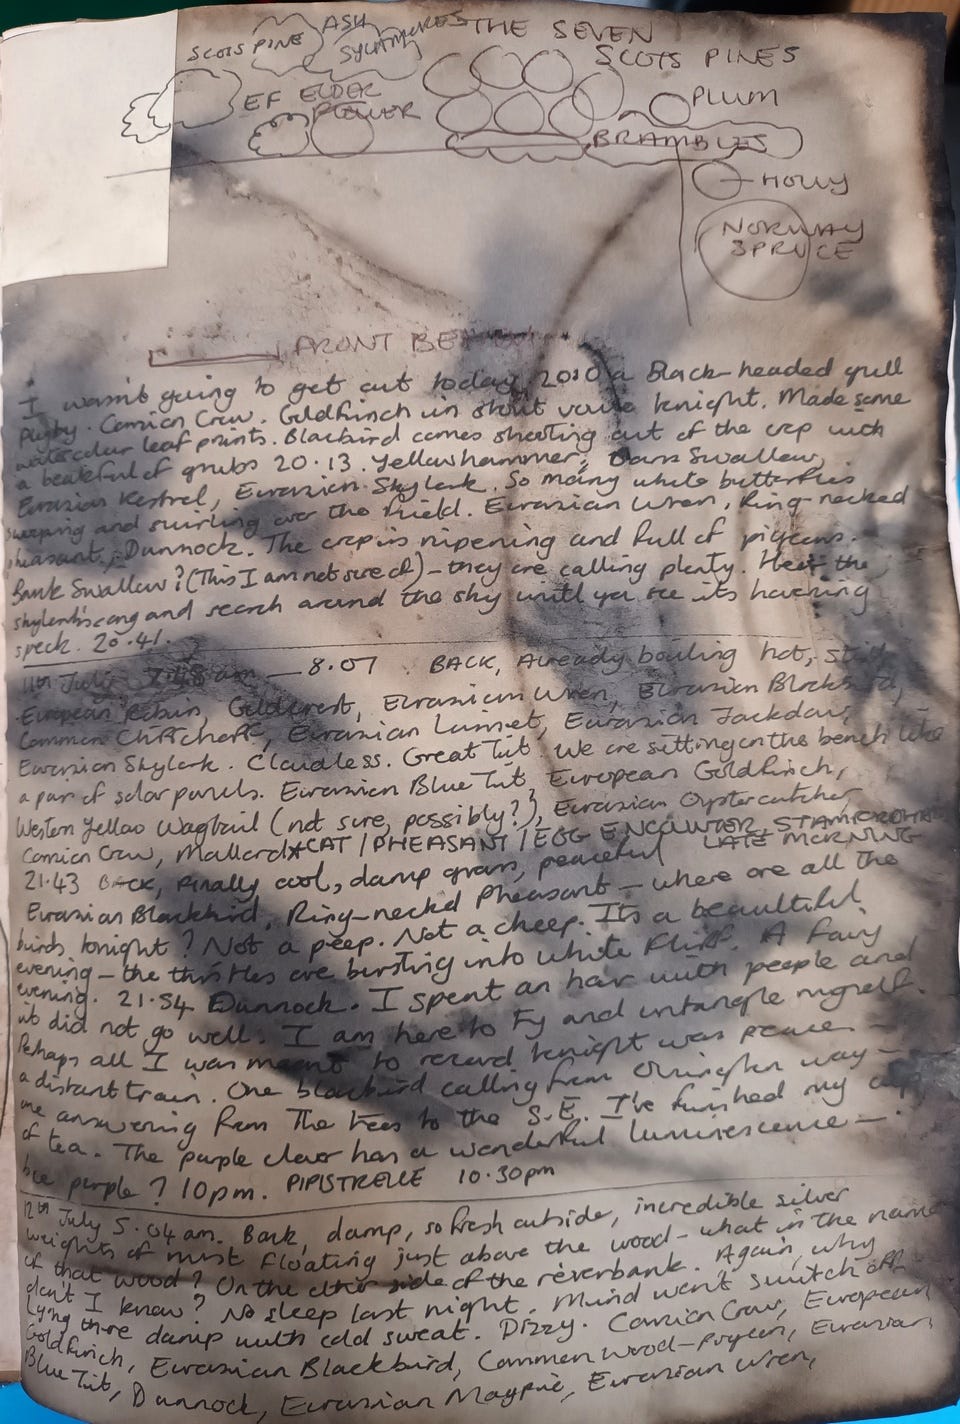 ASH
SCOTS PINE
SYCAMORES
THE SEVEN
SCOTS PINES
EF ELDER
FLOWER
PLUM
BRAMBLES
HOLLY
NORWAY
SPRUCE
FRONT
I wasn't going to get out today, 20.10 a Black-headed gull
Carrion Crow. Goldfinch in stout voice tonight. Made some
watercolour leaf prints. Blackbird comes shooting out of the crop with
a beakful of grubs 20.13. Yellowhammer, Barn Swallow,
Eurasian Kestrel, Eurasian Skylark. So many white butterflies
swooping and swirling over the field. Eurasian Wren, Ring-necked
pheasant, Dunnock. The crop is ripening and full of pigeons.
Bank Swallow? (This I am not sure of) - they are calling plenty. Hear the
skylark's song and search around the sky until you see its hovering
speck. 20.41.
11th July 7.48 am — 8.07 BACK, Already boiling hot, still
European Robin, Goldcrest, Eurasian Wren, Eurasian Blackbird,
Common Chiffchaff, Eurasian Linnet, Eurasian Jackdaw,
Eurasian Skylark. Cloudless. Great Tit. We are sitting on the bench like
a pair of solar panels. Eurasian Blue Tit, European Goldfinch,
Western Yellow Wagtail (not sure, possibly?), Eurasian Oystercatcher,
Carrion Crow, Mallard *CAT / PHEASANT / EGG ENCOUNTER,
LATE MORNING
21.43 BACK, finally cool, damp grass, peaceful
Eurasian Blackbird, Ring-necked Pheasant - where are all the
birds tonight? Not a peep. Not a cheep. It's a beautiful
evening - the thistles are bursting into white fluff. A fairy
evening. 21.54 Dunnock. I spent an hour with people and
it did not go well. I am here to try and untangle myself.
Perhaps all I was meant to record tonight was peace -
a distant train. One blackbird calling from way -
one answering from The trees to the S.E. I've finished my cup
of tea. The purple clover has a wonderful luminescence -
bee purple? 10pm. PIPISTRELLE 10.30pm
12th July 5.04 am. Back, damp, so fresh outside, incredible silver
weights of mist floating just above the wood - what in the name
of that wood? On the other side of the riverbank. Again, why
don't I know? No sleep last night. Mind won't switch off.
Lying there damp with cold sweat. Dizzy. Carrion Crow, European
Goldfinch, Eurasian Blackbird, Common Wood-pigeon, Eurasian
Blue Tit, Dunnock, Eurasian Magpie, Eurasian Wren,